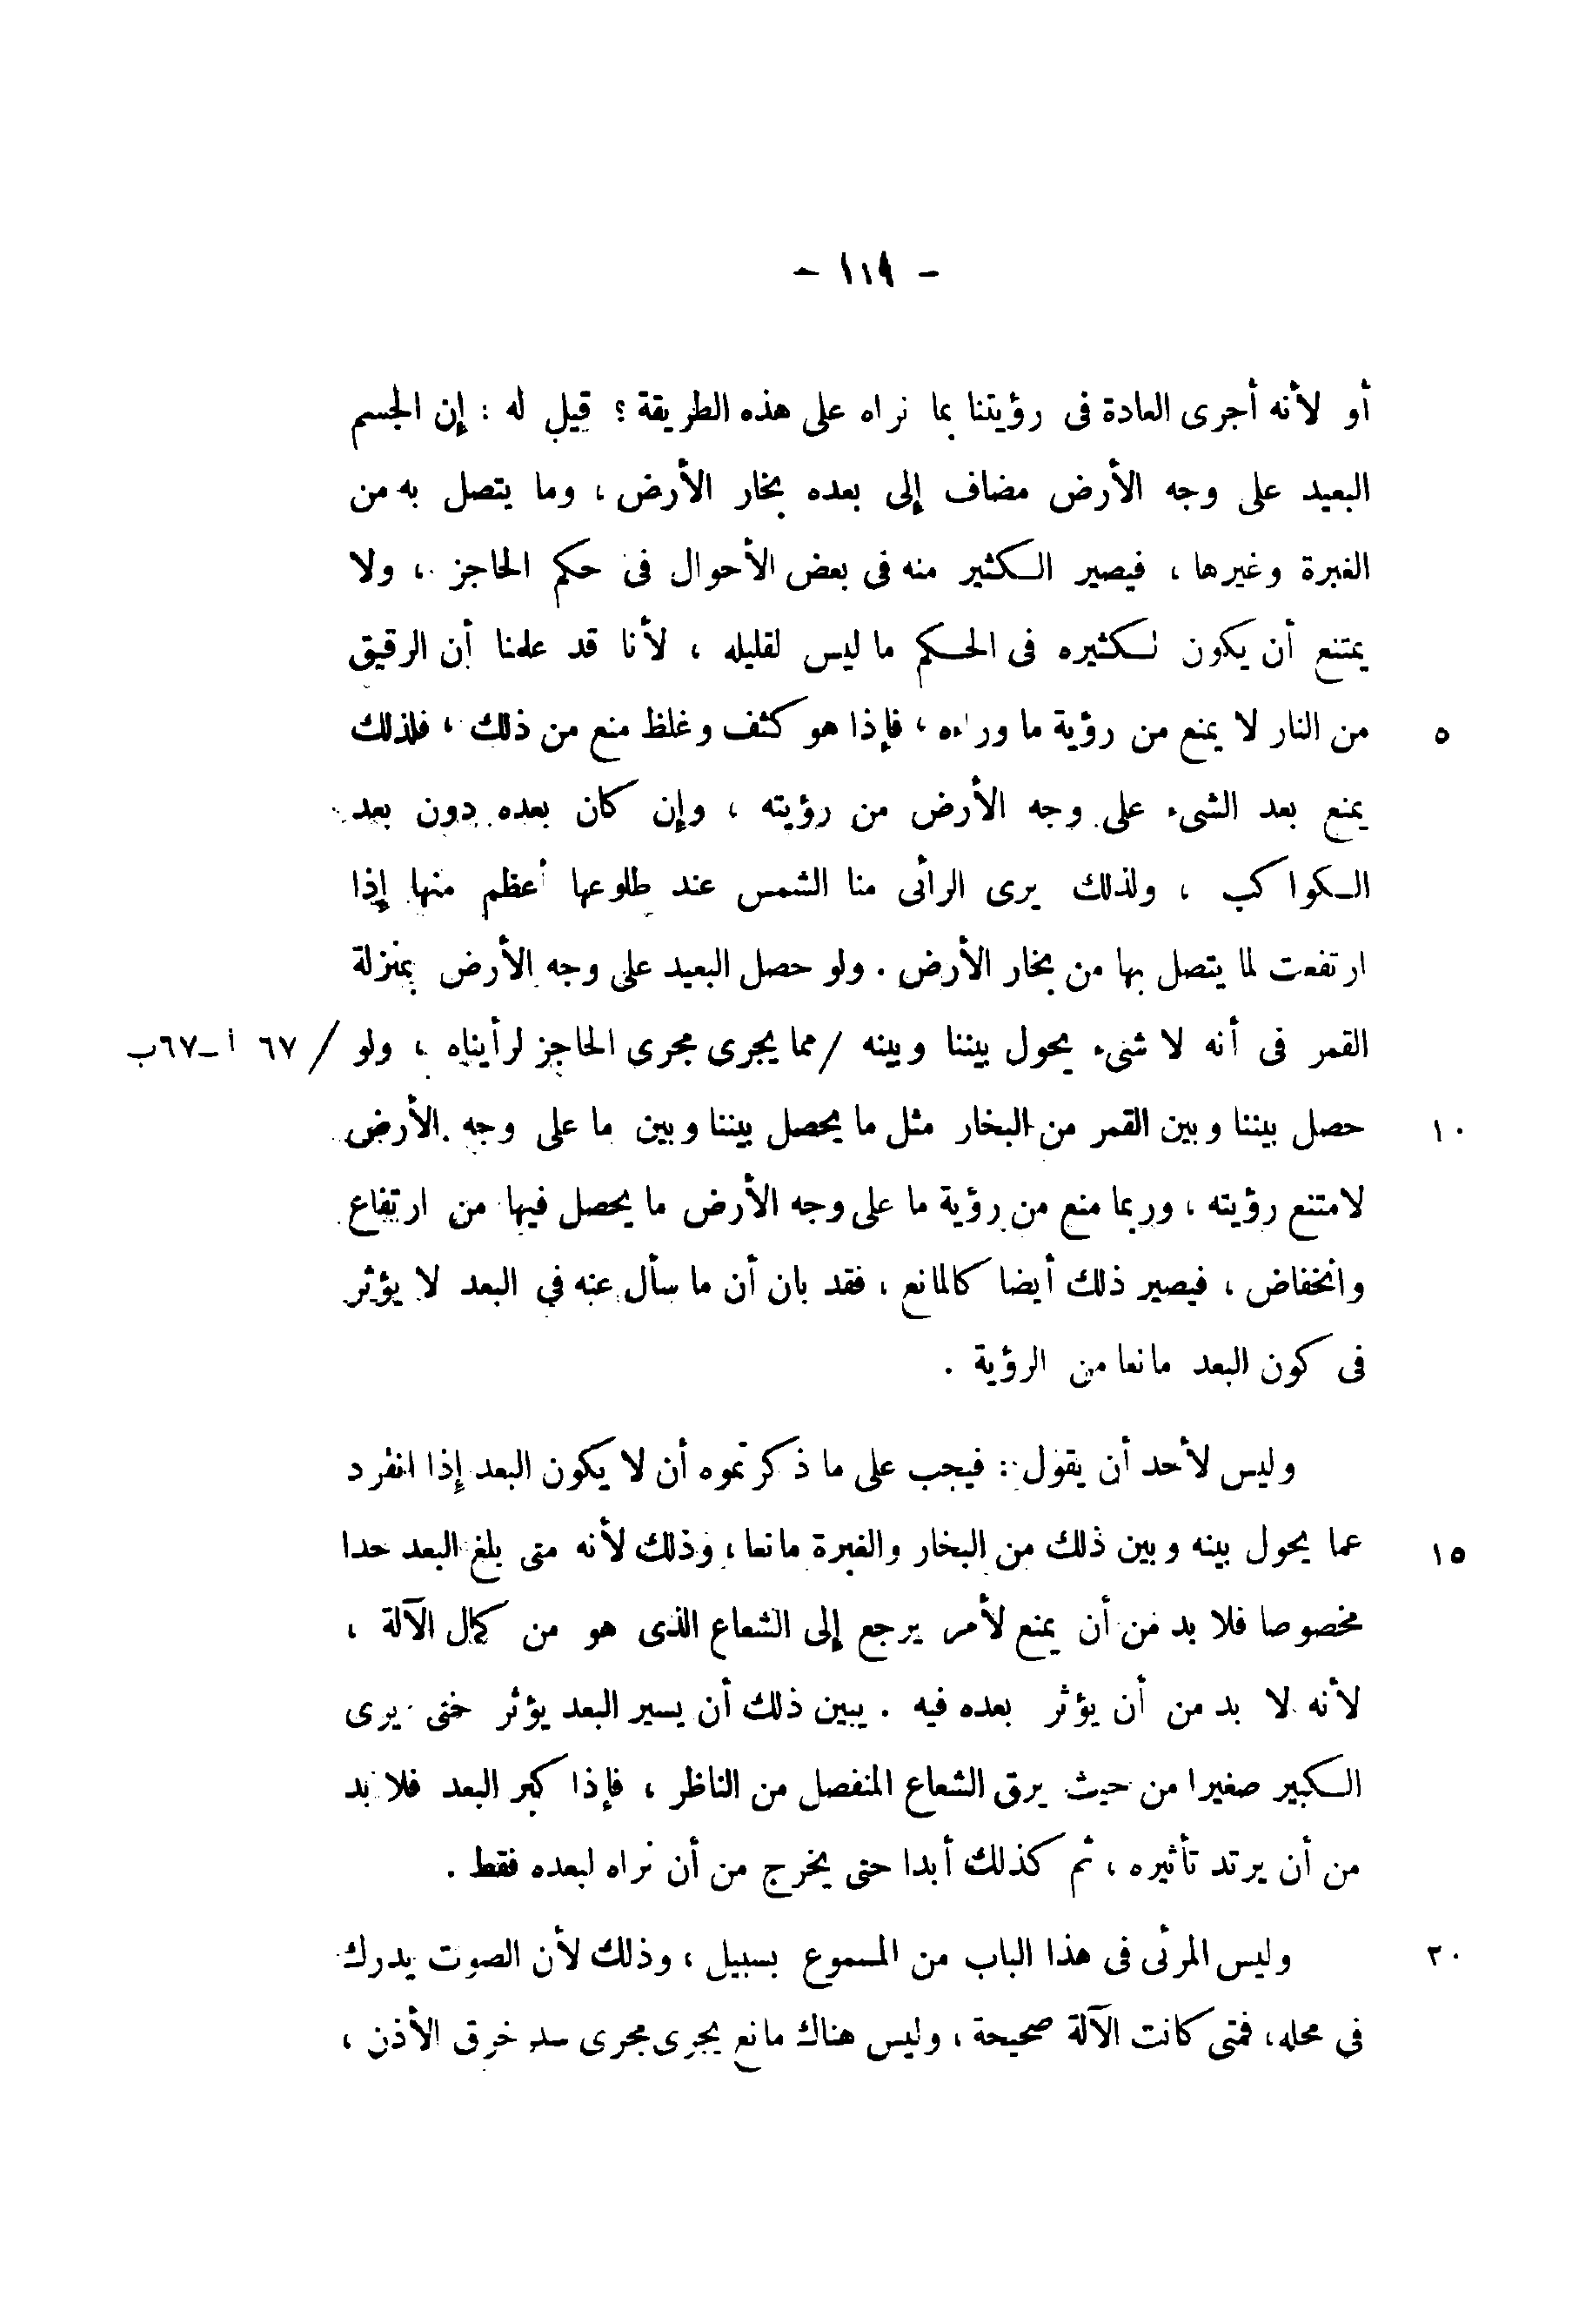 - ١١٩ -
أو لأنه أجرى العادة فى رؤيتنا بما نراه على هذه الطريقة ؟ قيل له : إن الجسم
البعيد على وجه الأرض مضاف إلى بعده بخار الأرض ، وما يتصل به من
الغبرة وغيرها ، فيصير الكثير منه فى بعض الأحوال فى حكم الحاجز ، ولا
يمتنع أن يكون لكثيره فى الحكم ما ليس لقليله ، لأنا قد علمنا أن الرقيق
من النار لا يمنع من رؤية ما وراءه ، فإذا هو كثف وغلظ منع من ذلك ، فلذلك ٥
يمنع بعد الشىء على وجه الأرض من رؤيته ، وإن كان بعده دون بعد
الكواكب ، ولذلك يرى الرأئى منا الشمس عند طلوعها أعظم منها إذا
ارتفعت لما يتصل بها من بخار الأرض . ولو حصل البعيد على وجه الأرض بمنزلة
القمر فى أنه لا شىء يحول بيننا وبينه / مما يجرى مجرى الحاجز لرأيناه ، ولو / ٦٧ أ ــ ٦٧ب
حصل بيننا وبين القمر من البخار مثل ما يحصل بيننا وبين ما على وجه الأرض ١٠
لامتنع رؤيته ، وربما منع من رؤية ما على وجه الأرض ما يحصل فيها من ارتفاع
وانخفاض ، فيصير ذلك أيضا كالمانع ، فقد بان أن ما سأل عنه في البعد لا يؤثر
فى كون البعد مانعا من الرؤية .
وليس لأحد أن يقول : فيجب على ما ذكرتموه أن لا يكون البعد إذا انفرد
عما يحول بينه وبين ذلك من البخار والغبرة مانعا ، وذلك لأنه متى بلغ البعد حدا ١٥
مخصوصا فلا بد من أن يمنع لأمر يرجع إلى الشعاع الذى هو من كمال الآلة ،
لأنه لا بد من أن يؤثر بعده فيه . يبين ذلك أن يسير البعد يؤثر حتى يرى
الكبير صغيرا من حيث يرق الشعاع المنفصل من الناظر ، فإذا كبر البعد فلا بد
من أن يرتد تأثيره ، ثم كذلك أبدا حتى يخرج من أن نراه لبعده فقط .
وليس المرئى فى هذا الباب من المسموع بسبيل ، وذلك لأن الصوت يدرك ٢٠
في محله ، فمتى كانت الآلة صحيحة ، وليس هناك مانع يجرى مجرى سد خرق الأذن ،